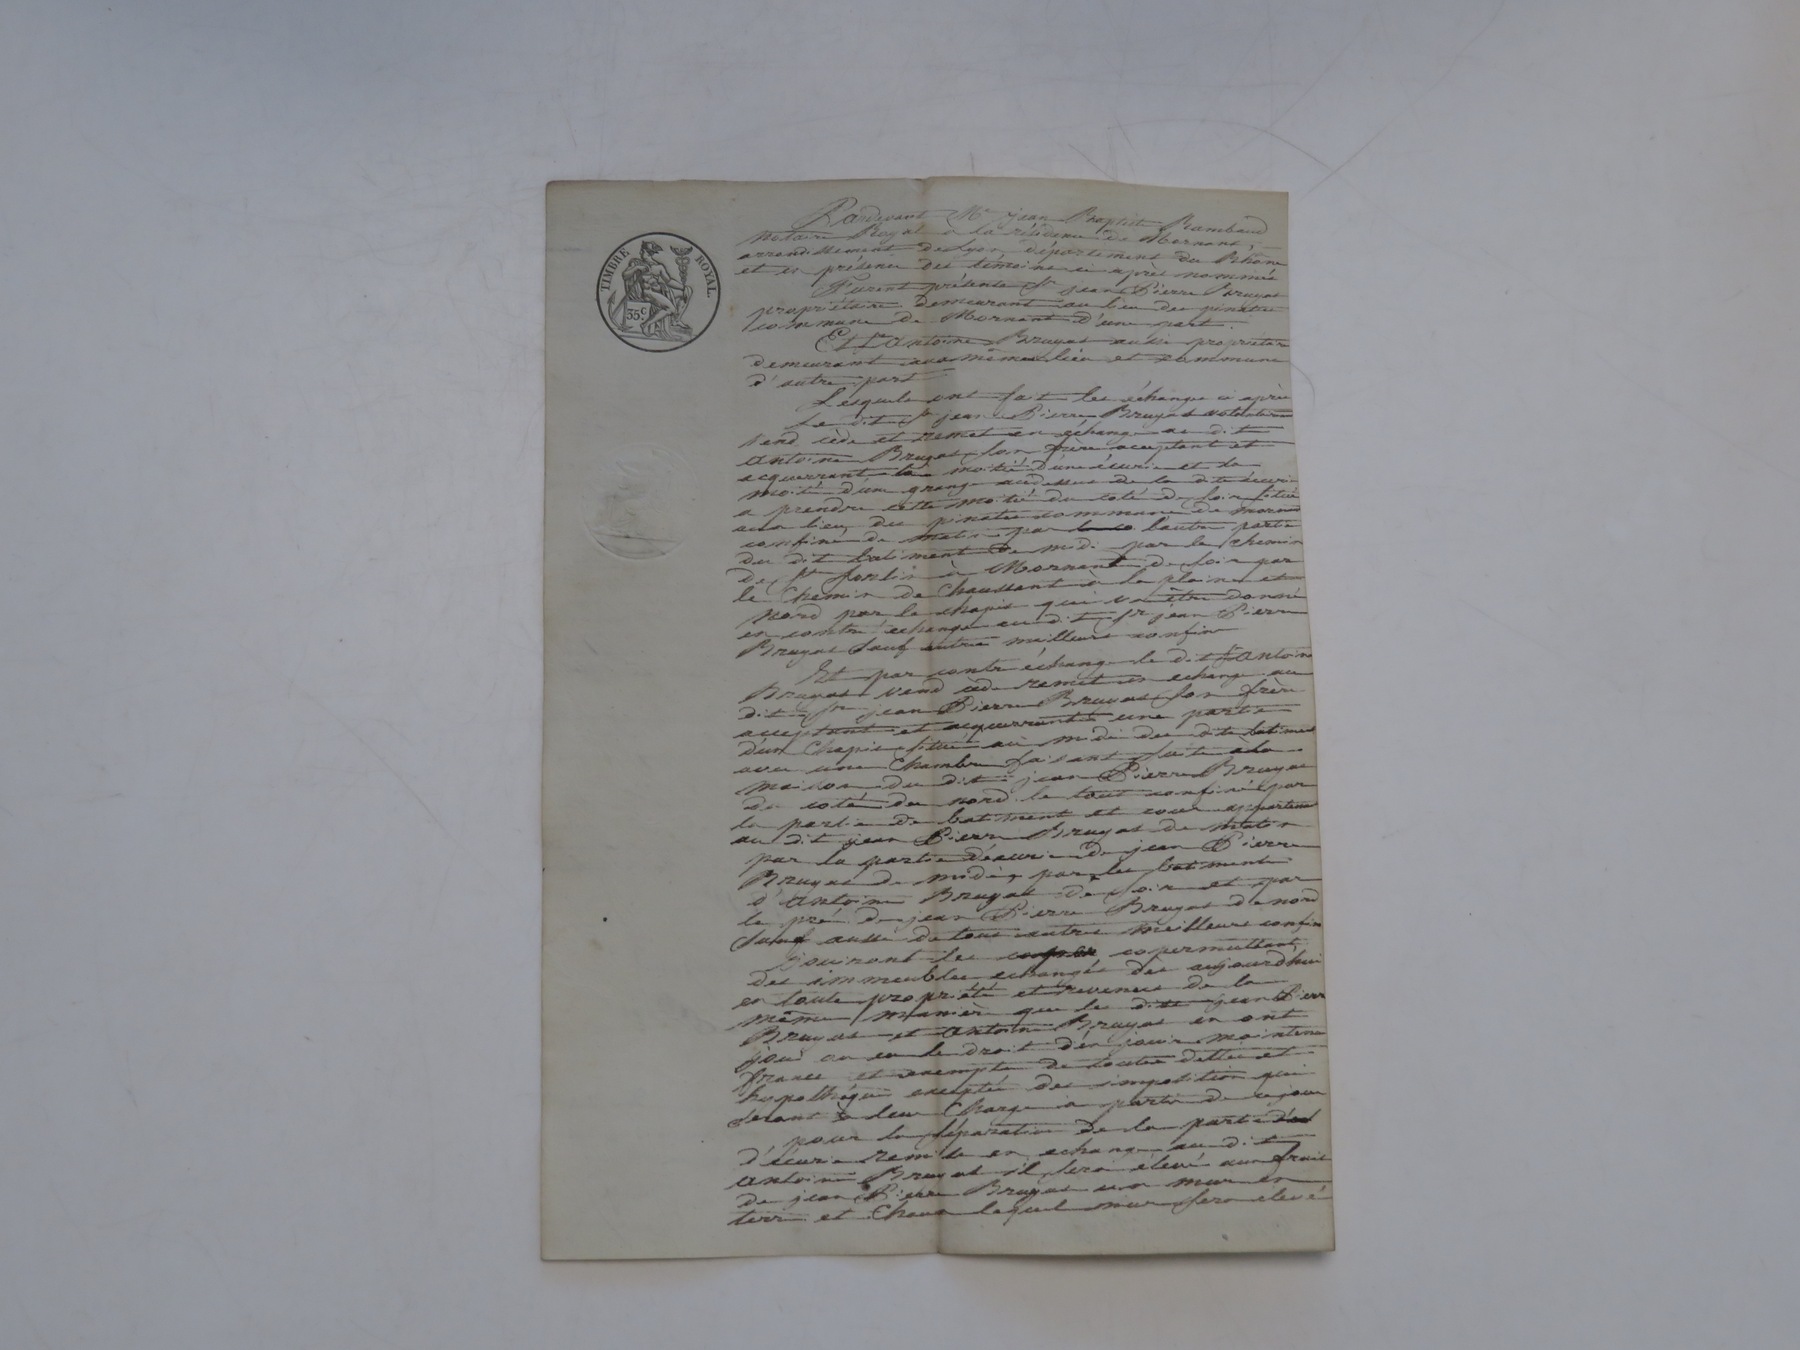 TIMBRE ROYAL.
35c
Pardevant Me jean Baptist Rambaud
notaire Royal a la résidence de Mornant,
arrondissement de Lyon, département du Rhône
et en présence des témoins ci après nommés
Furent présents Sr jean Pierre Bruyas
propriétaire demeurant au lieu du pinatre
commune de Mornant d'une part.
Et Sr Antoine Bruyas aussi propriétaire
demeurant aux mêmes lieu et commune
d'autre part
Lesquels ont fait les échange ci après
Le dit Sr jean Pierre Bruyas
vend cède et remet en échange au dit
Antoine Bruyas son frère acceptant et
acquerrant la moitié d'une écurie et la
moitié d'un grange audessus de la dite écurie
a prendre cette moitié du coté de soir situé
aux lieu du pinatre commune de Mornant
confiné de matin par l'autre partie
du dit batiment de midi par le chemin
de St à Mornant de soir par
le Chemin de Chaussant à la plaine et
nord par le chapis qui va être donné
en contre échange au dit Sr jean Pierre
Bruyas sauf autre meilleurs confins
Et par contre échange le dit Sr Antoine
Bruyas vend cède remet en echange au
dit Sr jean Pierre Bruyas son frère
acceptant et acquerrant une partie
d'un Chapis situé au midi des dits batiment
avec une Chambre faisant suite a la
maison du dit jean Pierre Bruyas
du coté du nord le tout confiné par
la partie de batiment et cour appartenant
au dit jean Pierre Bruyas de matin
par la partie d'écurie de jean Pierre
Bruyas de midi, par les batiment
d'Antoine Bruyas de soir et par
le pré de jean Pierre Bruyas de nord
sauf aussi de tous autres meilleurs confins
jouiront les copermuttant
des immeubles echangés des aujourdhui
en toute propriété et revenus de la
même manière que les dits jean Pierre
Bruyas et Antoine Bruyas en ont
joui ou eu le droit d'en jouir maintenu
francs et exempts de toutes dettes et
hypothéques exceptés des imposition qui
seront à leur Charge à partir de ce jour
pour la séparation de la partie
d'écurie remise en echange au dit
Antoine Bruyas il sera élevé aux frais
de jean Pierre Bruyas un mur en
terre et Chaux lequel mur sera elevé